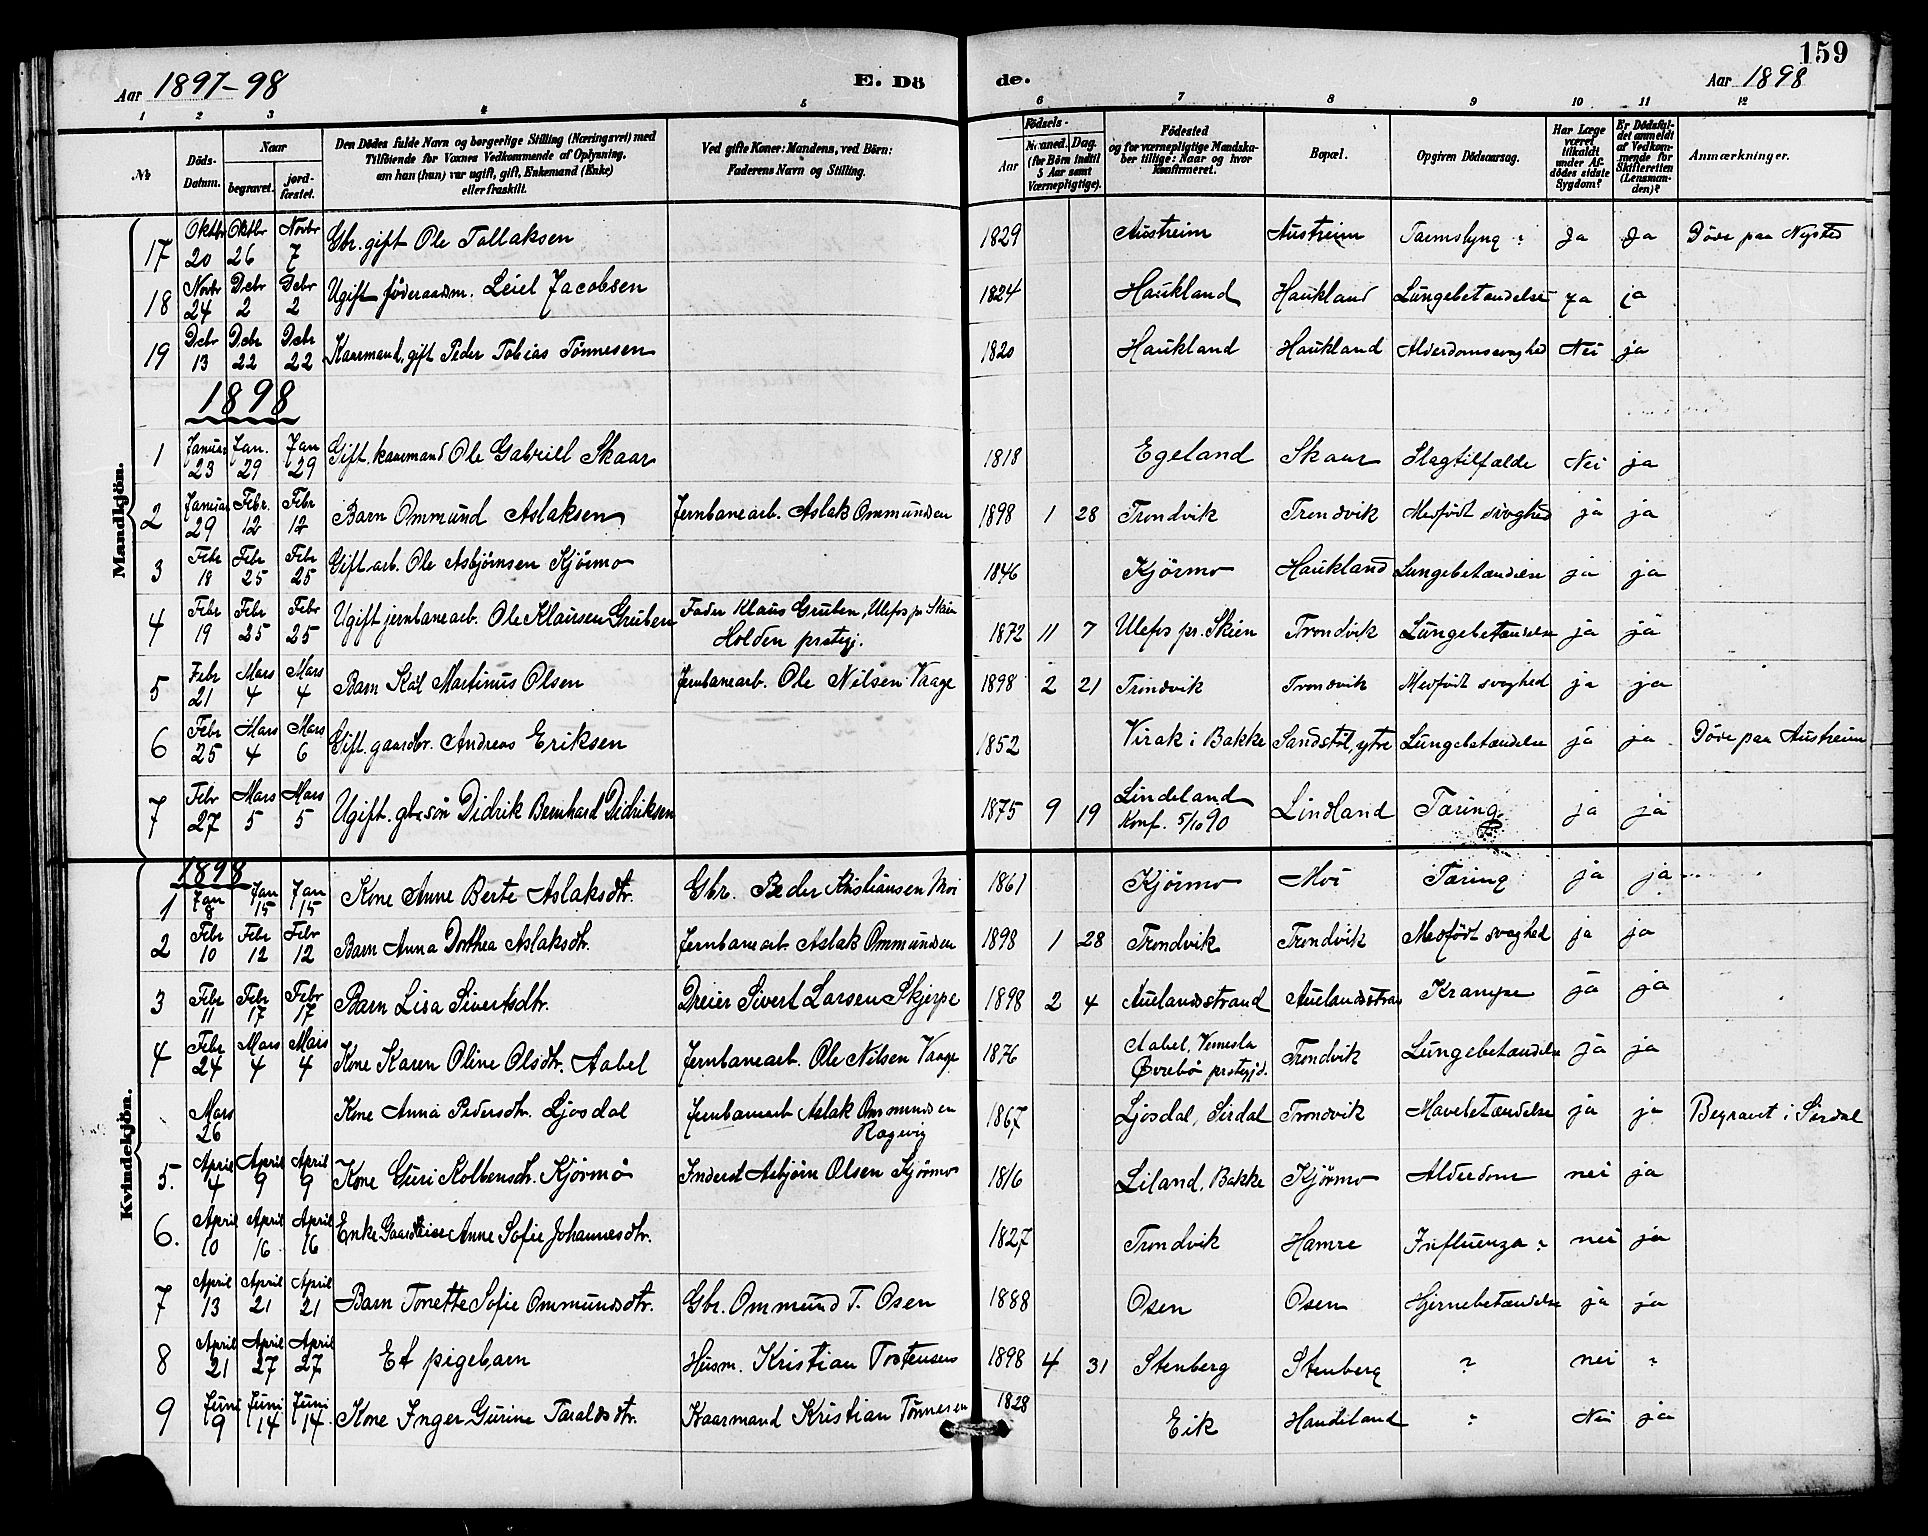 159
Aar 1897-98 E. Dö de. Aar 1898
1 2 3 4 5 6 7 8 9 10 11 12
№ Döds-Datum. Naar begravet. jordfæstet. Den Dödes fulde Navn og borgerlige Stilling (Næringsvei) med Tilföiende for Voxnes Vedkommende af Oplysning, om han (hun) var ugift, gift, Enkemand (Enke) eller fraskilt. Ved gifte Koner: Mandens, ved Börn: Faderens Navn og Stilling. Födsels- Aar Maaned. Dag. (for Börn indtil 5 Aar samt Værnepligtige). Födested og for værnepligtige Mandskaber tillige: Naar og hvor konfirmeret. Bopæl. Opgiven Dödsaarsag. Har Læge været tilkaldt under Afdödes sidste Sygdom? Er Dödsfaldet anmeldt af Vedkommende for Skifteretten (Lensmanden)? Anmærkninger.
Mandkjön.
17 Oktbr 20 Oktbr 26 Novbr 7 Gbr. gift Ole Tollaksen 1829 Austreim Austreim Ja Ja Döde paa Nysted
18 Novbr 24 Debr 2 Debr 2 Ugift föderaadsm. Leiel Jacobsen 1824 Haukland Haukland Lungebetændelse ja ja
19 Debr 13 Debr 22 Debr 22 Kaarmand, gift Peder Tobias Tönnesen 1820 Haukland Haukland Alderdomssvaghed Nei ja
1898
1 Januar 23 Jan. 29 Jan 29 Gift. kaarmand Ole Gabriel Skaar 1818 Egeland Skaar Slagtilfælde Nei ja
2 Januar 29 Febr. 12 Febr 12 Barn Ommund Aslaksen Jernbanearb. Aslak Ommundsen 1898 1 28 Trondvik Trondvik Medfödt svaghed ja ja
3 Febr 18 Febr 25 Febr 25 Gift arb. Ole Asbjörnsen Kjörmo 1846 Kjörmo Haukland Lungebetændelse ja ja
4 Febr 19 Febr 25 Febr 25 Ugift jernbanearb. Ole Klausen Gruben Fader Klaus Gruben, Ulefos pr Skien
Holden prstegj. 1872 11 7 Ulefos pr. Skien Trondvik Lungebetændelse ja ja
5 Febr 21 Mars 4 Mars 4 Barn Karl Martinus Olsen Jernbanearb. Ole Nilsen Vaage 1898 2 21 Trondvik Trondvik Medfödt svaghed ja ja
6 Febr 25 Mars 4 Mars 6 Gift. gaardbr. Andreas Eriksen 1852 Virak i Bakke Sandstöl, ytre Lungebetændelse ja ja Döde paa Austreim
7 Febr 27 Mars 5 Mars 5 Ugift. gbr. sön Didrik Bernhard Didriksen 1875 9 19 Lindeland
Konf. 5/10 90 Lindland Tæring ja ja
Kvindekjön.
1898
1 Jan 8 Jan 15 Jan 15 Kone Anne Berte Aslaksdtr. Gbr. Peder Kristiansen Moi 1861 Kjörmo Moi Tæring ja ja
2 Febr 10 Febr 12 Febr 12 Barn Anna Dorthea Aslaksdtr. Jernbanearb. Aslak Ommundsen 1898 1 28 Trondvik Trondvik Medfödt svaghed ja ja
3 Febr 11 Febr 17 Febr 17 Barn Lisa Sivertsdtr. Dreier Sivert Larsen Skjerpe 1898 2 4 Auelandsstrand Auelandsstran Krampe ja ja
4 Febr 24 Mars 4 Mars 4 Kone Karen Oline Olsdtr. Aabel Jernbanearb. Ole Nilsen Vaage 1876 Aabel, Vennesla
Øvrebö prstegjd. Trondvik Lungebetændelse ja ja
Mars 26 Kone Anna Pedersdtr. Ljosdal Jernbanearb Aslak Ommundsen
Rægevig 1867 Ljosdal, Sirdal Trondvik Mavebetændelse ja ja Begravet i Sirdal
5. April 4 April 9 April 9 Kone Guri Kolbensdtr. Kjörmo Inderst Asbjörn Olsen Kjörmo 1816 Liland, Bakke Kjörmo Alderdom nei ja
6. April 10 April 16 April 16 Enke Anne Sofie Johannesdtr. 1827 Trondvik Hamre Influenza ? nei ja
7 April 13 April 21 April 21 Barn Tonette Sofie Ommundsdtr. Gbr. Ommund T. Osen 1888 Osen Osen Hjernebetændelse ja ja
8 April 21 April 27 April 27 Et pigebarn Husm. Kristian Trotensens 1898 4 31 Stenberg Stenberg ? nei ?
9 Juni 9 Juni 14 Juni 14 Kone Inger Gurine Taraldsdtr. Kaarmand Kristian Tönnesen 1828 Eik Handeland ? Nei ja